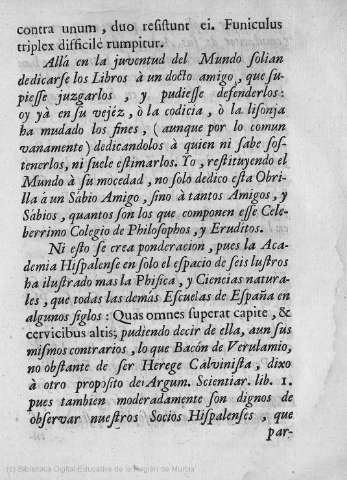 contra unum, duo resistunt ei. Funiculus
triplex difficilè rumpitur.
Allà en la juventud del Mundo solian
dedicarse los Libros à un docto amigo, que su-
piesse juzgarlos, y pudiesse defenderlos:
oy yà en su vejéz, ò la codicia, ò la lisonja
ha mudado los fines, (aunque por lo comun
vanamente) dedicandolos à quien ni sabe sos-
tenerlos, ni suele estimarlos. Yo, restituyendo el
Mundo à su mocedad, no solo dedico esta Obri-
lla à un Sabio Amigo, sino à tantos Amigos, y
Sabios, quantos son los que componen esse Cele-
berrimo Colegio de Philosophos, y Eruditos.
Ni esto se crea ponderacion, pues la Aca-
demia Hispalense en solo el espacio de seis lustros
ha ilustrado mas la Phisica, y Ciencias natura-
les, que todas las demàs Escuelas de España en
algunos siglos: Quas omnes superat capite, &
cervicibus altis; pudiendo decir de ella, aun sus
mismos contrarios, lo que Bacón de Verulamio,
no obstante de ser Herege Calvinista, dixo
à otro proposito de Argum. Scientiar. lib. 1.
pues tambien moderadamente son dignos de
observar nuestros Socios Hispalenses, que
par-
(c) Biblioteca Digital Educativa de la Región de Murcia